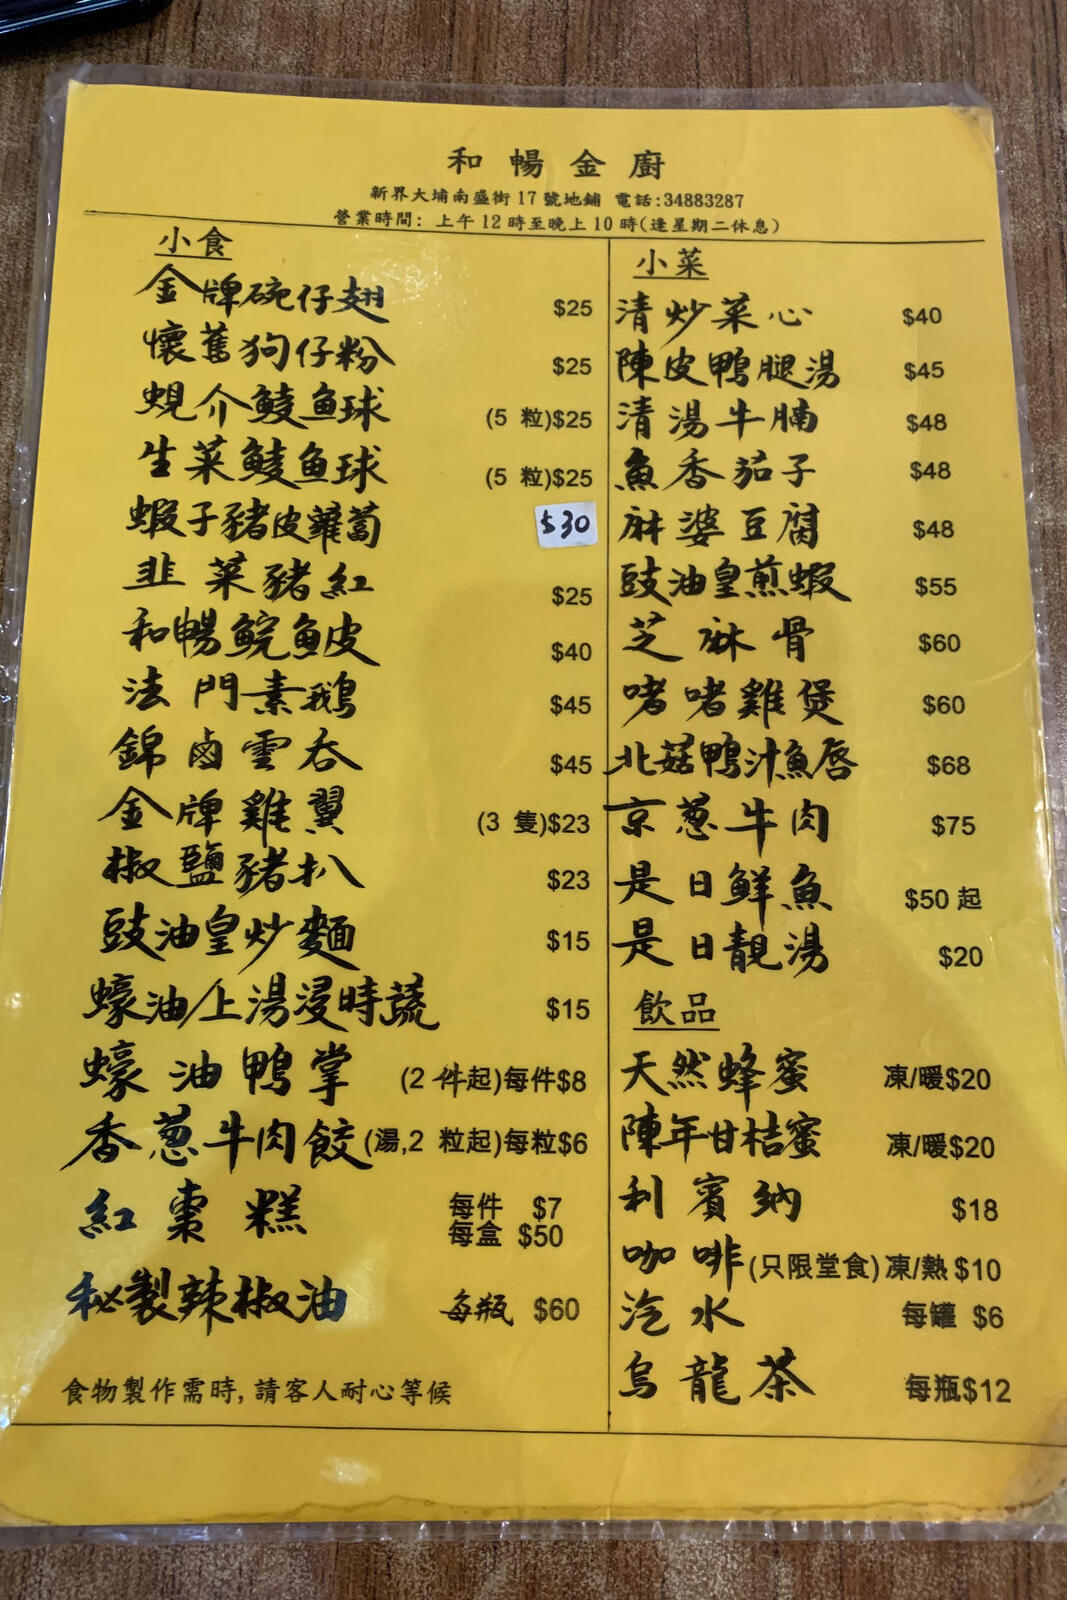 和暢金廚
新界大埔南盛街17號地鋪 電話:34883287
營業時間: 上午12時至晚上10時(逢星期二休息)
小食
金牌碗仔翅 $25
懷舊狗仔粉 $25
蜆介鯪魚球 (5 粒)$25
生菜鯪魚球 (5 粒)$25
蝦子豬皮蘿蔔 $30
韭菜豬紅 $25
和暢鯇魚皮 $40
法門素鵝 $45
錦鹵雲吞 $45
金牌雞翼 (3 隻)$23
椒鹽豬扒 $23
豉油皇炒麵 $15
蠔油/上湯浸時蔬 $15
蠔油鴨掌 (2 件起)每件$8
香葱牛肉餃 (湯,2 粒起)每粒$6
紅棗糕 每件 $7
每盒 $50
秘製辣椒油 每瓶 $60
食物製作需時,請客人耐心等候
小菜
清炒菜心 $40
陳皮鴨腿湯 $45
清湯牛腩 $48
魚香茄子 $48
麻婆豆腐 $48
豉油皇煎蝦 $55
芝麻骨 $60
啫啫雞煲 $60
北菇鴨汁魚唇 $68
京葱牛肉 $75
是日鮮魚 $50 起
是日靚湯 $20
飲品
天然蜂蜜 凍/暖$20
陳年甘桔蜜 凍/暖$20
利賓納 $18
咖啡 (只限堂食) 凍/熱 $10
汽水 每罐 $6
烏龍茶 每瓶$12